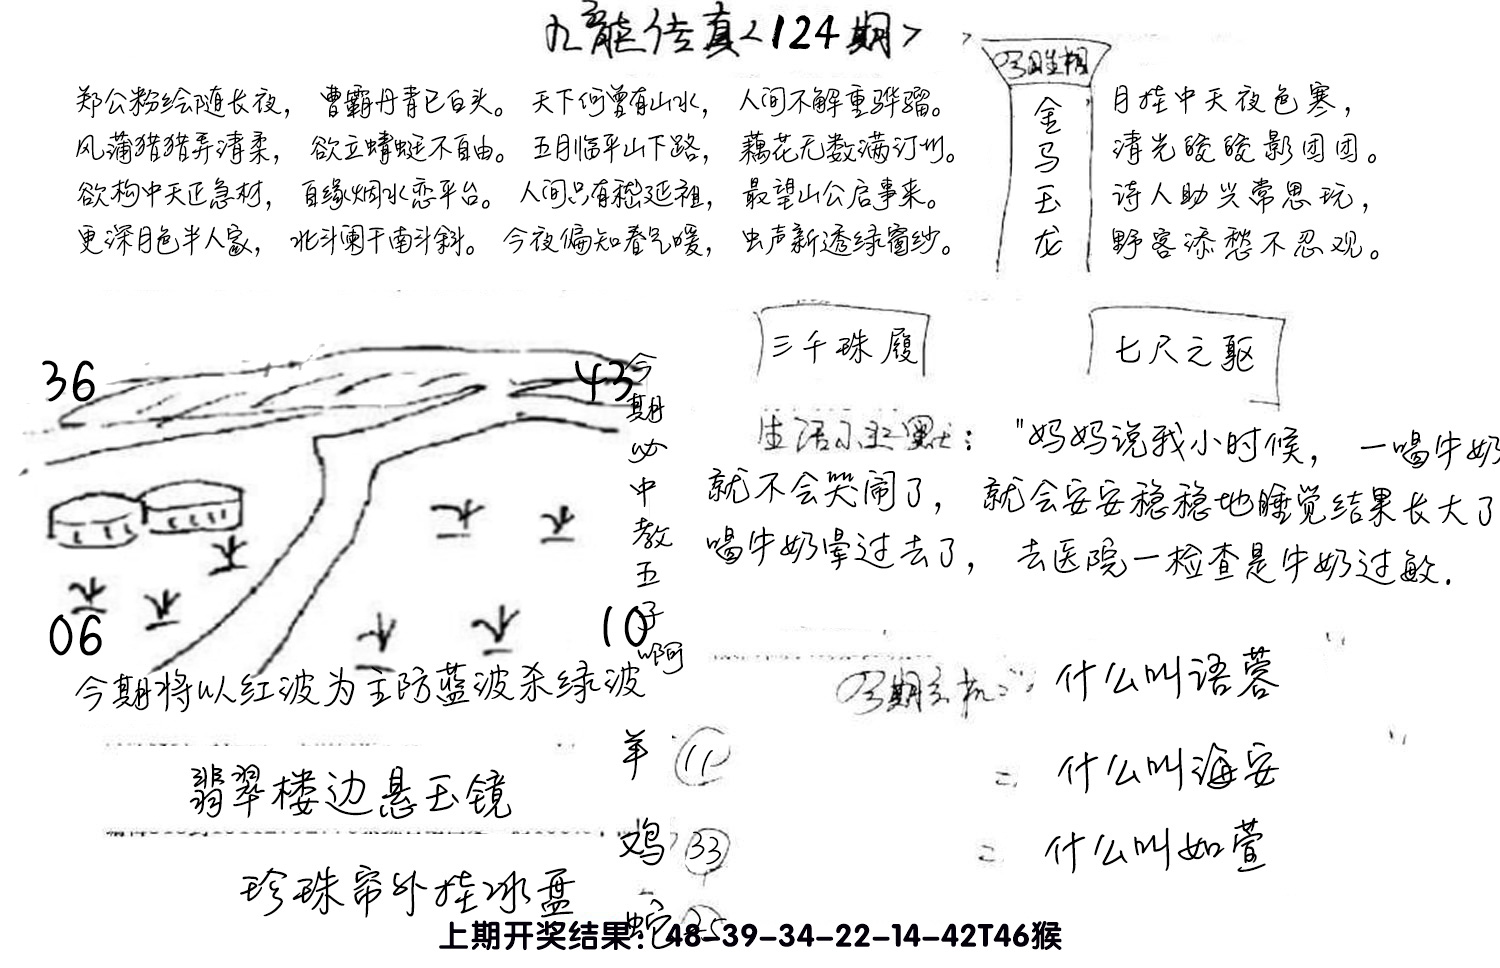 九龙传真<124期>
郑公粉绘随长夜， 曹霸丹青已白头。 天下何曾有山水， 人间不解重骅骝。
风蒲猎猎弄清柔， 欲立蜻蜓不自由。 五月临平山下路， 藕花无数满汀州。
欲构中天正急材， 自缘烟水恋平台。 人间只有嵇延祖， 最望山公启事来。
更深月色半人家， 北斗阑干南斗斜。 今夜偏知春气暖， 虫声新透绿窗纱。
金马玉龙
月挂中天夜色寒，
清光皎皎影团团。
诗人助兴常思玩，
野客添愁不忍观。
三千珠履
七尺之躯
36
43
06
10
今期必中教五子啊
生活小幽默："妈妈说我小时候， 一喝牛奶
就不会哭闹了， 就会安安稳稳地睡觉结果长大了
喝牛奶晕过去了， 去医院一检查是牛奶过敏.
今期将以红波为主防蓝波杀绿波
今期玄机: 什么叫语蓉
= 什么叫海安
= 什么叫如萱
翡翠楼边悬玉镜
珍珠帘外挂冰盘
羊 11
鸡 33
蛇 25
上期开奖结果：48-39-34-22-14-42T46猴